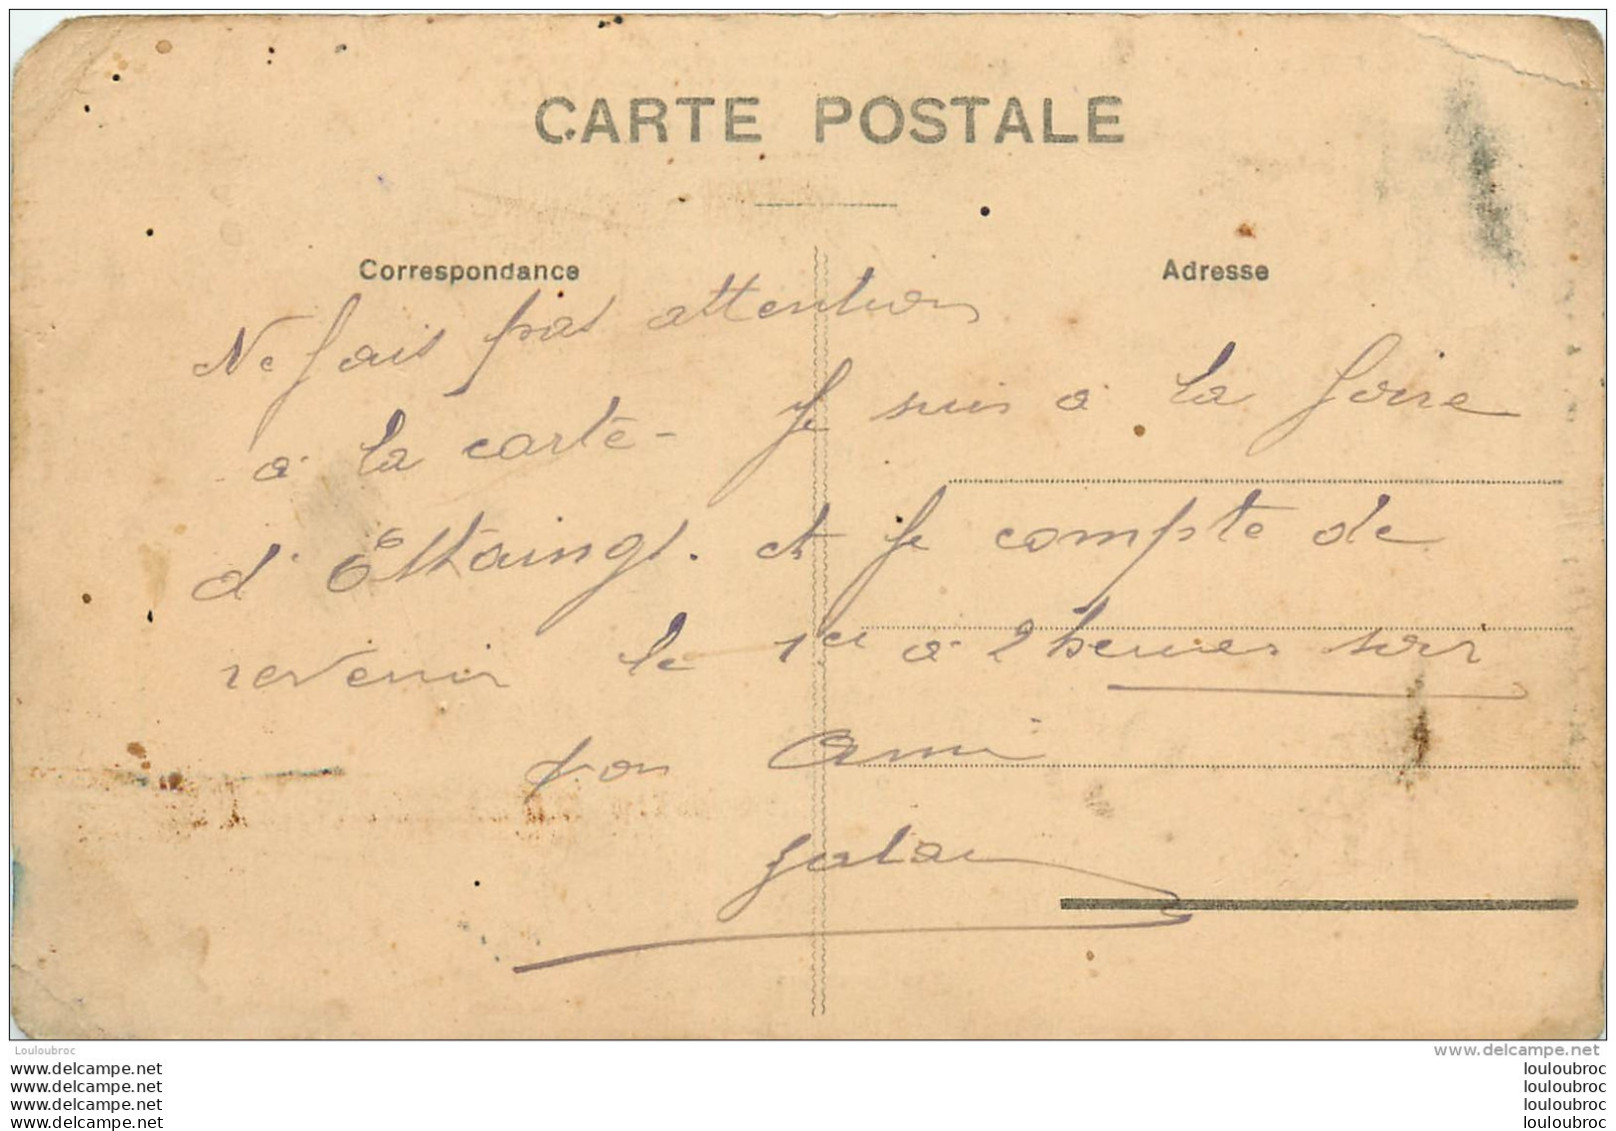 CARTE POSTALE
Correspondance
Adresse
Ne fais pas attention
à la carte - Je suis à la foire
d'Estaings. et je compte de
revenir le 1er à 2 heures soir
ton Ami
Louloubroc
www.delcampe.net
www.delcampe.net
louloubroc
www.delcampe.net
louloubroc
www.delcampe.net
louloubroc
www.delcampe.net
louloubroc